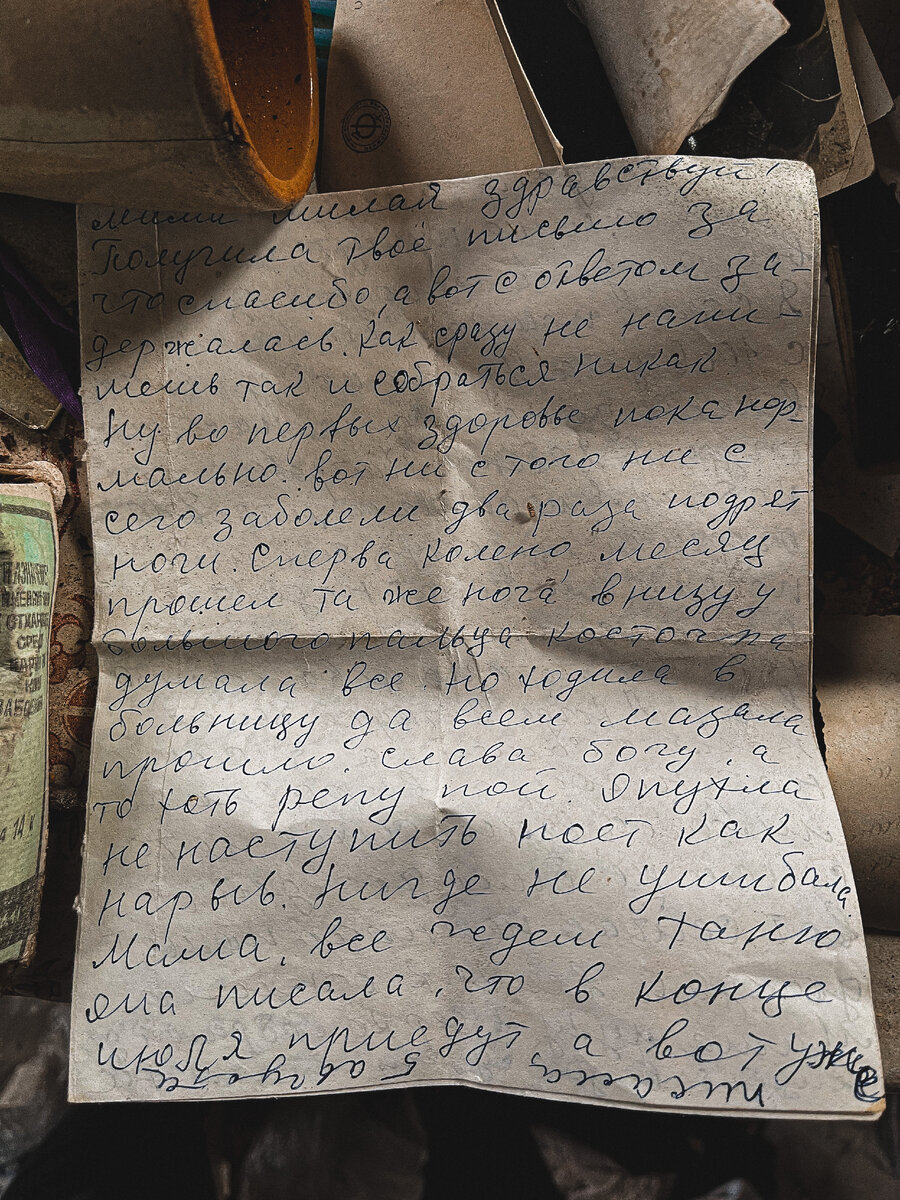 милая здравствуй!
Получила твоё письмо за
что спасибо, а вот с ответом за-
держалась. Как сразу не напи
шешь так и собраться никак
Ну во первых здоровье пока нор-
мально. вот ни с того ни с
сего заболели два раза подрят
ноги. Сперва колено, месяц
прошел та же нога внизу у
большого пальца косточка
думала все. Но ходила в
больницу да всем мазала
прошло. слава богу, а
то хоть репу пой. Опухла
не наступить ноет как
нарыв. Нигде не ушибала.
Мама, все ждем Таню
она писала, что в конце
июля приедут, а вот уже
5 августа
писала
14 к